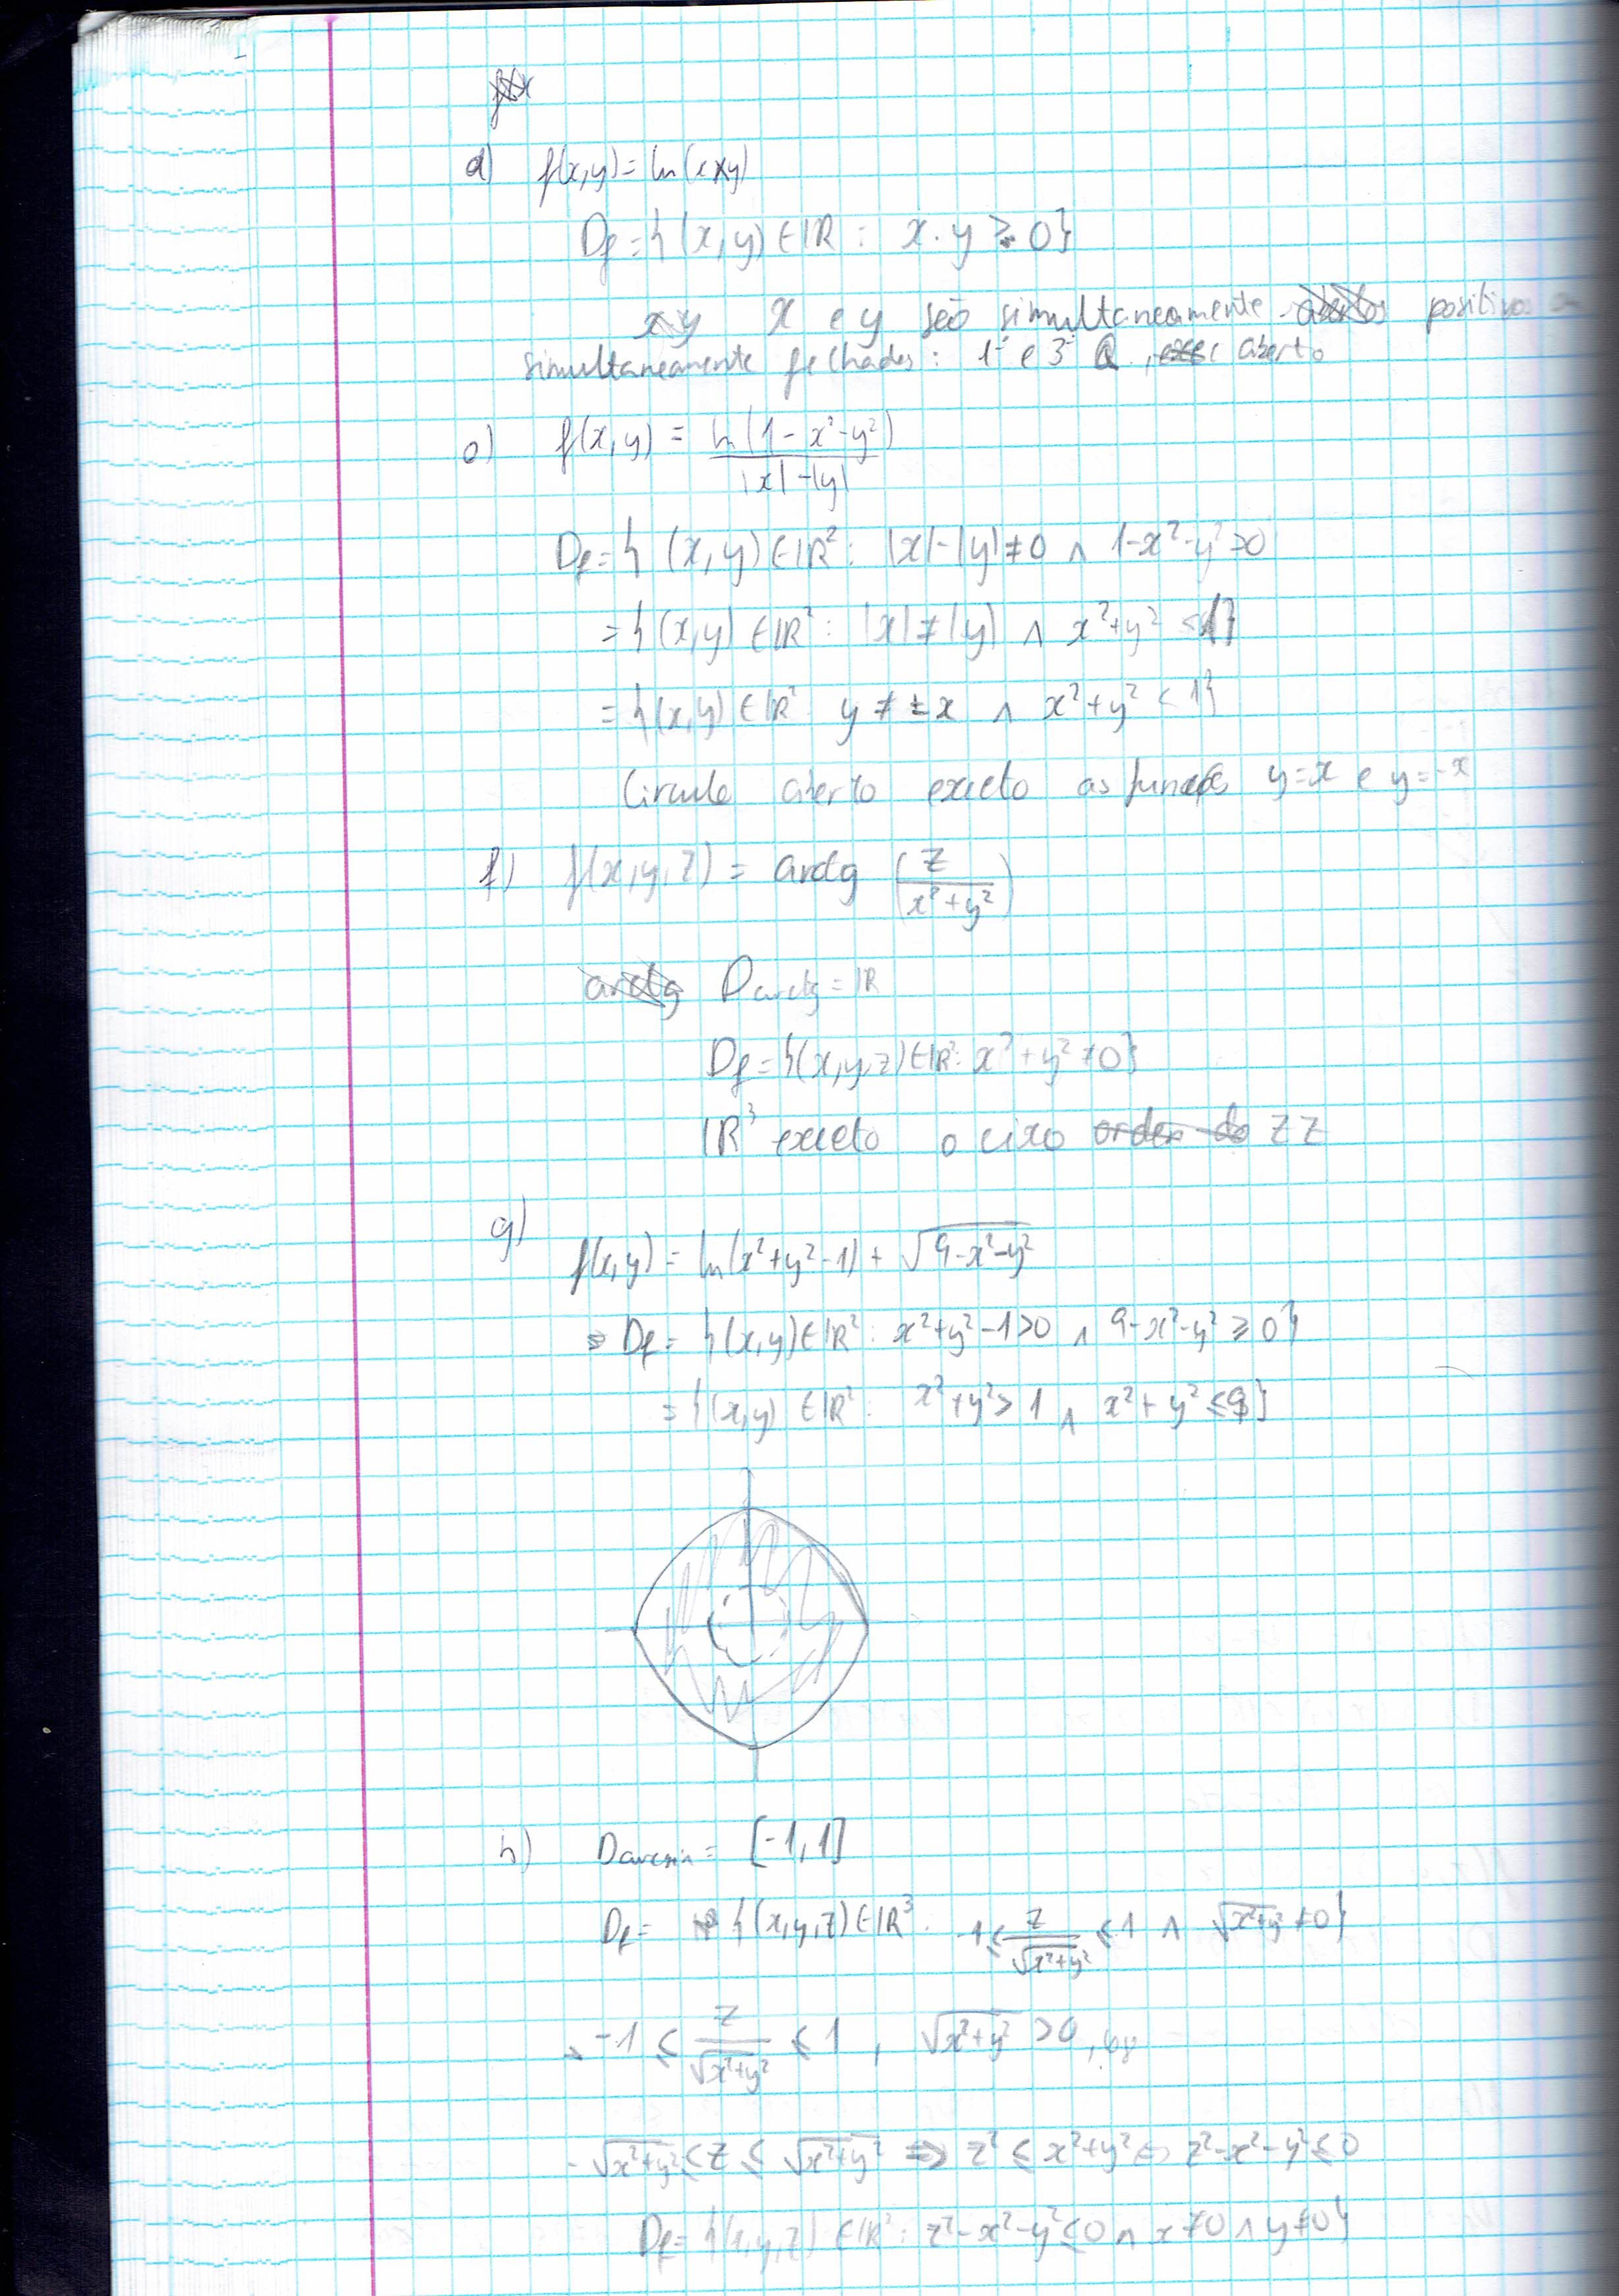 d) f(x,y) = ln(x×y)
Df = {(x,y) ∈ IR : x . y > 0}
x e y são simultaneamente positivos
simultaneamente fechados: 1º e 3º Q, aberto
e) f(x,y) = ln(1-x²-y²) / |x|-|y|
Df = { (x,y) ∈ IR² : |x|-|y| ≠ 0 ∧ 1-x²-y² > 0
= {(x,y) ∈ IR² : |x| ≠ |y| ∧ x²+y² < 1}
= {(x,y) ∈ IR² y ≠ ± x ∧ x²+y² < 1}
Circulo aberto exceto as funções y=x e y=-x
f) f(x,y,z) = arctg (z / x²+y²)
Darctg = IR
Df = {(x,y,z) ∈ IR³: x²+y² ≠ 0}
IR³ exceto o eixo ZZ
g)
f(x,y) = ln(x²+y²-1) + √9-x²-y²
Df = {(x,y) ∈ IR² : x²+y²-1>0 ∧ 9-x²-y² ⩾ 0}
= {(x,y) ∈ IR² : x²+y² > 1 ∧ x²+y² ⩽ 9}
h) Darcsin = [-1,1]
Df = {(x,y,z) ∈ IR³ : -1 ⩽ z / √x²+y² ⩽ 1 ∧ √x²+y² ≠ 0}
-1 ⩽ z / √x²+y² ⩽ 1 , √x²+y² > 0,
-√x²+y² ⩽ z ⩽ √x²+y² ⇒ z² ⩽ x²+y² ⇔ z²-x²-y² ⩽ 0
Df = {(x,y,z) ∈ IR³ : z²-x²-y² ⩽ 0 ∧ x ≠ 0 ∧ y ≠ 0}